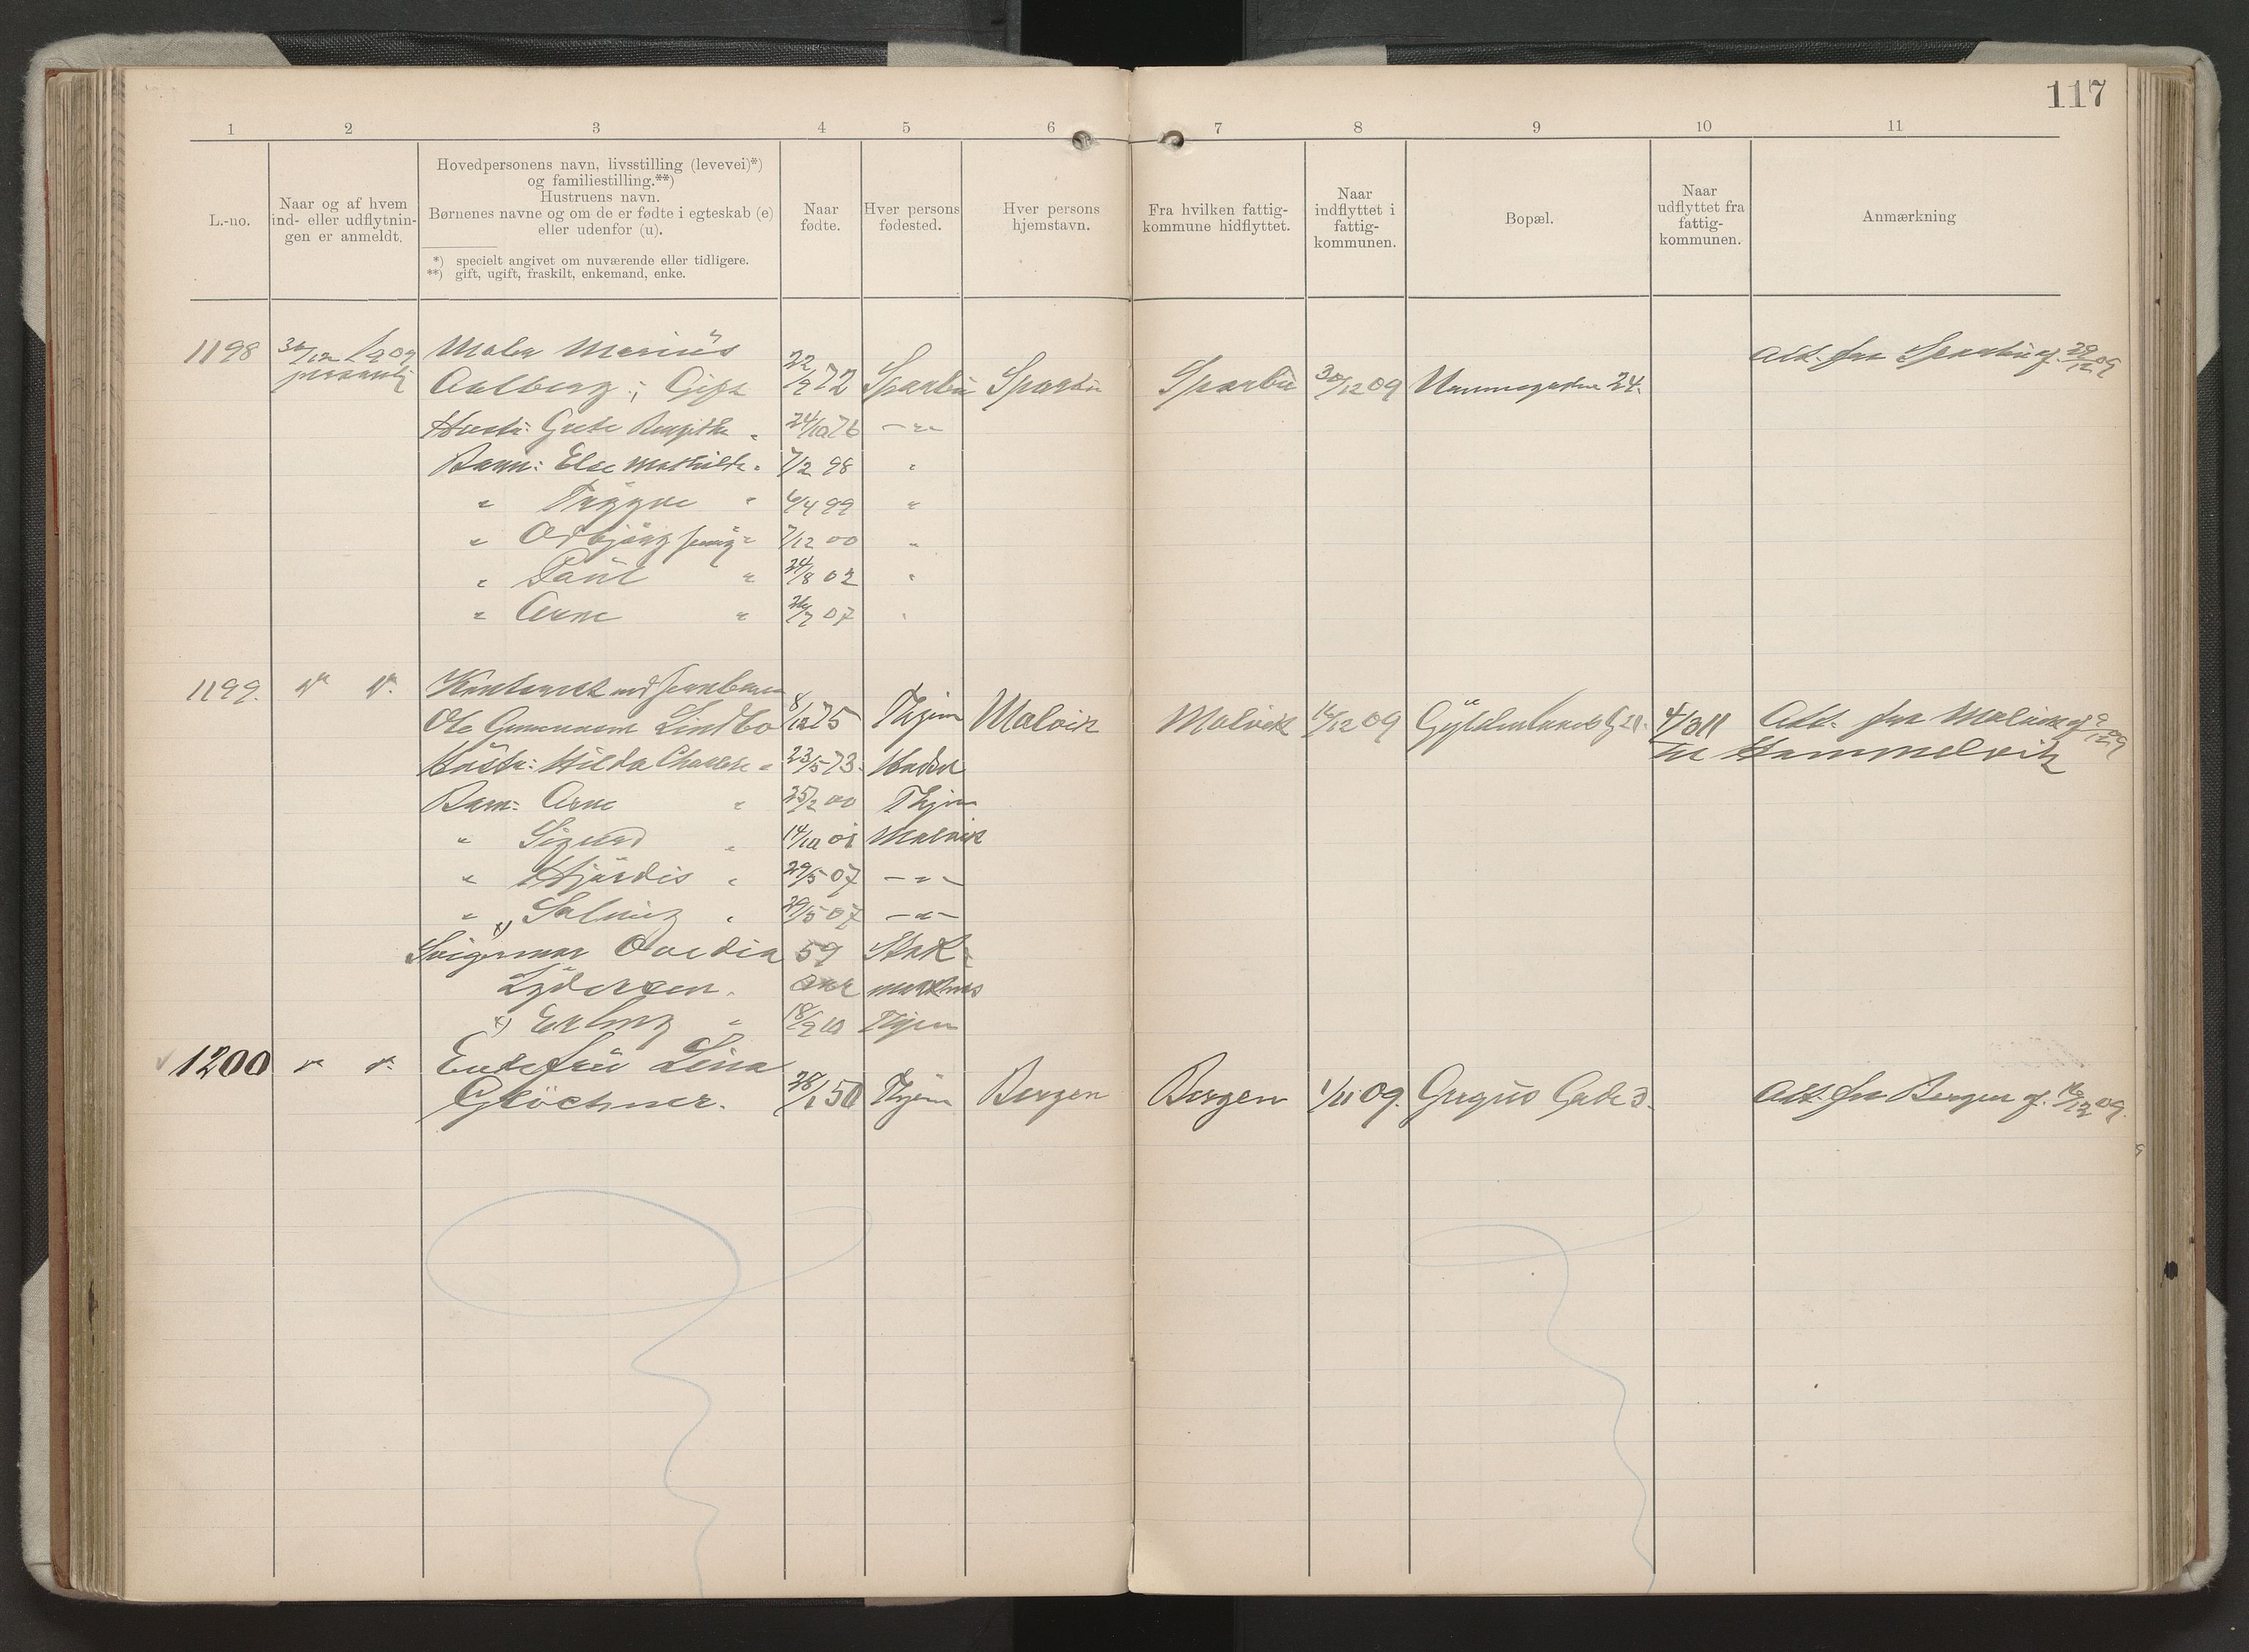 117
1 2 3 4 5 6 7 8 9 10 11
L.-no.
Naar og af hvem
ind- eller udflytnin-
gen er anmeldt.
Hovedpersonens navn, livsstilling (levevei)*)
og familiestilling.**)
Hustruens navn.
Børnenes navne og om de er fødte i egteskab (e)
eller udenfor (u).
*) specielt angivet om nuværende eller tidligere.
**) gift, ugift, fraskilt, enkemand, enke.
Naar
fødte.
Hver persons
fødested.
Hver persons
hjemstavn.
Fra hvilken fattig-
kommune hidflyttet.
Naar
indflyttet i
fattig-
kommunen.
Bopæl.
Naar
udflyttet fra
fattig-
kommunen.
Anmærkning
1198 30/12 1909 Maler Marius Att. fra Sparbu af 29/12 09
personlig Aalberg; Gift 22/9 72 Sparbu Sparbu Sparbu 30/12 09 24.
Hustr: Grete 24/10 76 — " —
Barn: Else Mathilde " 7/2 98 "
" Trygve " 6/4 99 "
" Odbjørg " 7/12 00 "
" Paul " 24/8 02 "
" Arne " 07 "
1199. " " Kontorist ved Jernbanen
Ole Lindbo 8/12 75 Thjem Malvik Malvik 16/12 09 4/3 11 Att. fra Malvik af 09
Hustr: Hilda " 23/5 73. Hadsel Til Hommelvik
Barn: Arne " 25/2 00 Thjem
" Sigurd " 14/10 01 Malvik
" Hjördis " 29/5 07 — " —
" x) Solveig " 29/5 07 — " —
Svigermor Ovedia 59 Stok
Lydersen. Aar marknes
x) Erling " 18/9 10 Thjem
1200 " " Enkefru Lina
Glöchner. 28/1 50 Thjem Bergen Bergen 1/11 09. Gade 3. Att. fra Bergen af. 16/12 09.